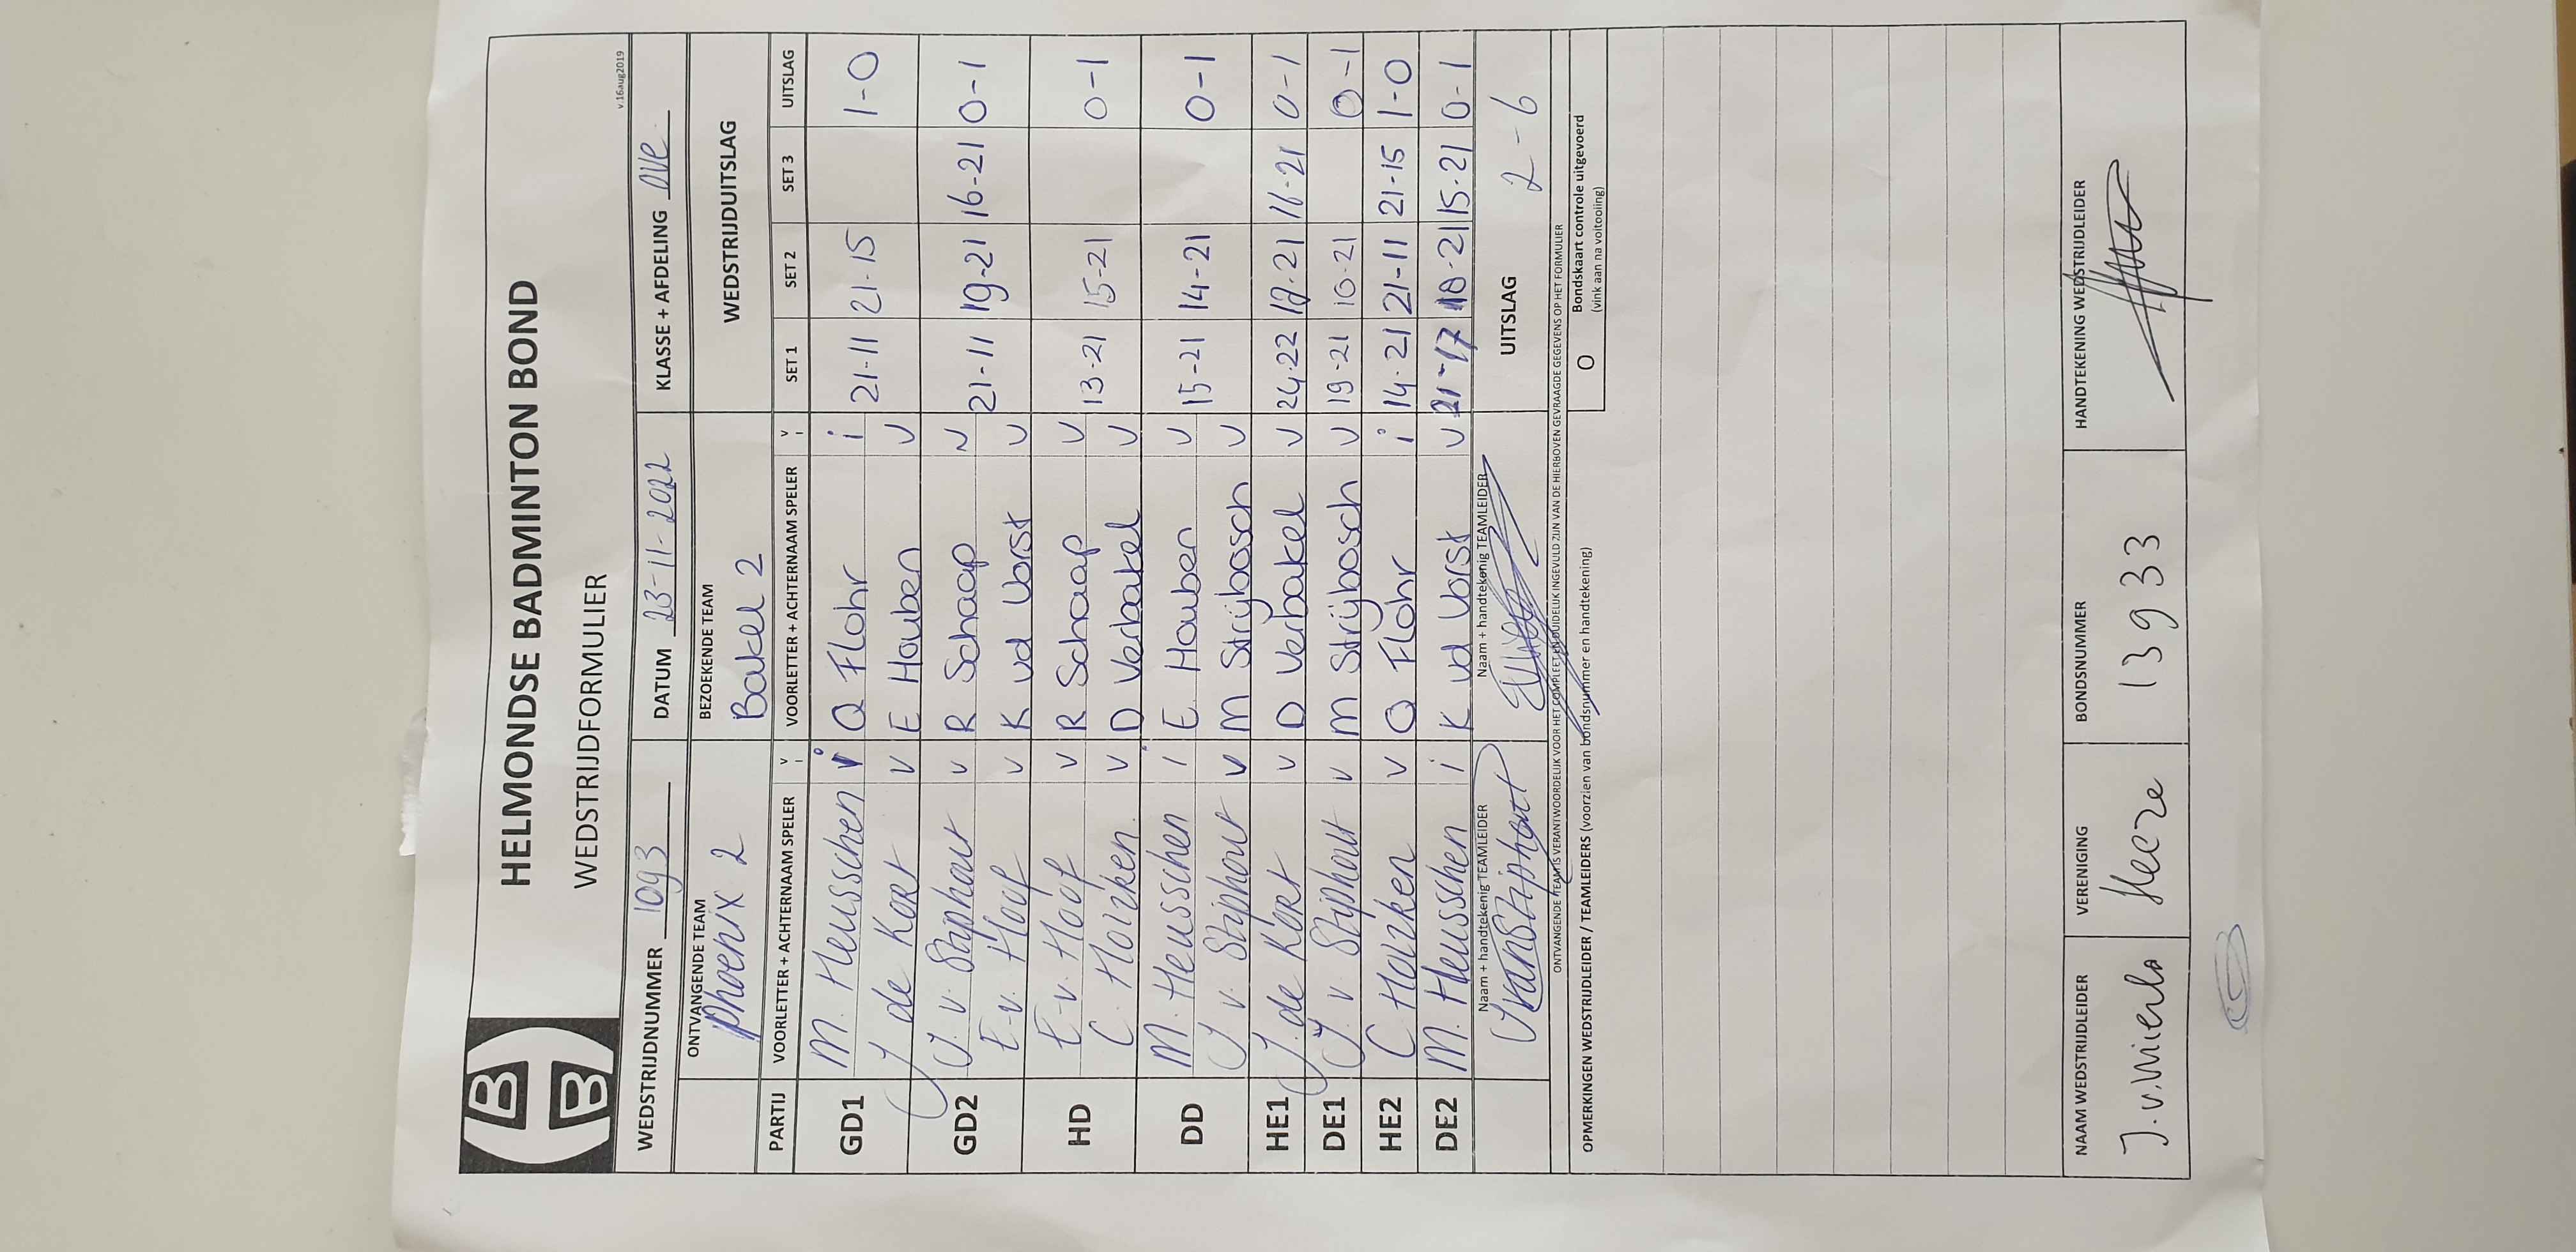 HELMONDSE BADMINTON BOND
WEDSTRIJDFORMULIER
v.16aug2019
WEDSTRIJDNUMMER 1093 DATUM 23-11-2022 KLASSE + AFDELING OVE
ONTVANGENDE TEAM BEZOEKENDE TEAM WEDSTRIJDUITSLAG
phoenix 2 Bakel 2
PARTIJ VOORLETTER + ACHTERNAAM SPELER V I VOORLETTER + ACHTERNAAM SPELER V I SET 1 SET 2 SET 3 UITSLAG
GD1 M. Heusschen i Q Flohr i 21-11 21-15 1-0
J de Kort v E Houben v
GD2 J. v. Stiphout v R Schaap v 21-11 19-21 16-21 0-1
E.v. Hoof v K vd Vorst v
HD E.v. Hoof v R Schaap v 13-21 15-21 0-1
C. Holzken. v D Verbakel v
DD M. Heusschen i E. Houben v 15-21 14-21 0-1
J v. Stiphout v M Strijbosch v
HE1 J. de Kort v D Verbakel v 24-22 17-21 16-21 0-1
DE1 J. v Stiphout v M Strijbosch v 19-21 10-21 0-1
HE2 C Holzken v Q Flohr i 14-21 21-11 21-15 1-0
DE2 M. Heusschen i K vd Vorst v 21-17 18-21 15-21 0-1
Naam + handtekenig TEAMLEIDER Naam + handtekenig TEAMLEIDER UITSLAG 2-6
JvanStiphout
ONTVANGENDE TEAM IS VERANTWOORDELIJK VOOR HET COMPLEET EN DUIDELIJK INGEVULD ZIJN VAN DE HIERBOVEN GEVRAAGDE GEGEVENS OP HET FORMULIER
OPMERKINGEN WEDSTRIJDLEIDER / TEAMLEIDERS (voorzien van bondsnummer en handtekening) O Bondskaart controle uitgevoerd
(vink aan na voltooiing)
NAAM WEDSTRIJDLEIDER VERENIGING BONDSNUMMER HANDTEKENING WEDSTRIJDLEIDER
J.v.Mierlo Heeze 13933